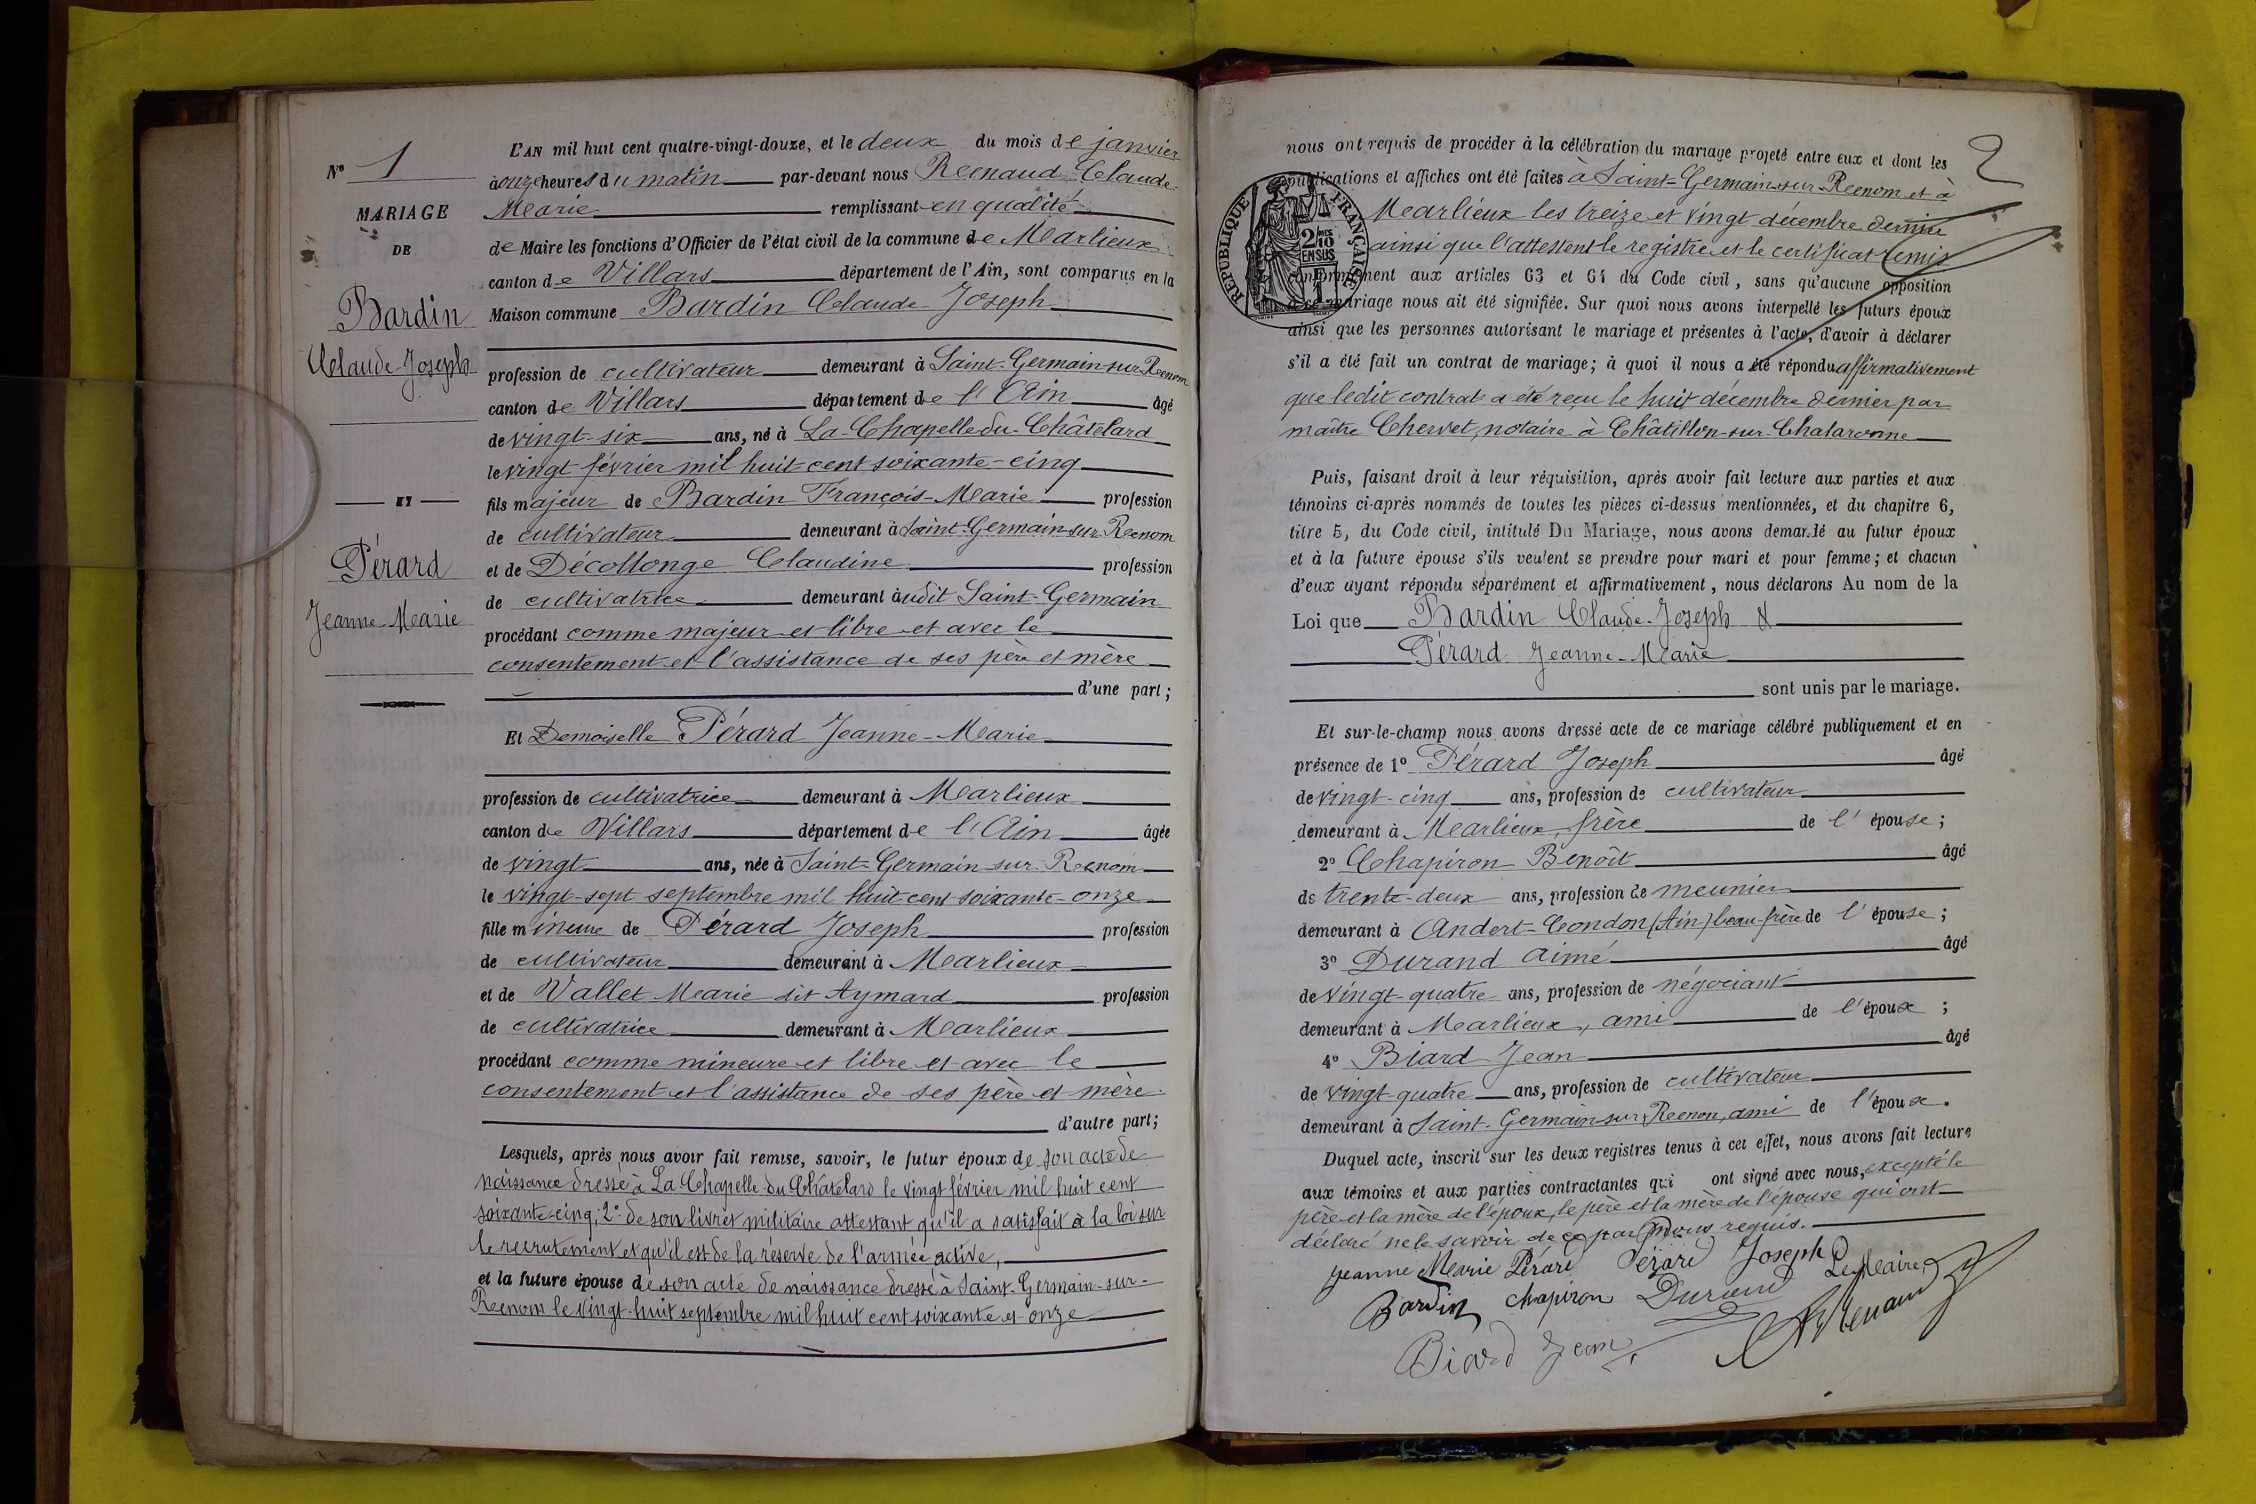 N° 1
MARIAGE
DE
Bardin
Claude-Joseph
ET
Pérard
Jeanne-Marie
L'AN mil huit cent quatre-vingt-douze, et le deux du mois de janvier
à onze heures du matin par-devant nous Renaud Claude-
Marie remplissant en qualité
de Maire les fonctions d'Officier de l'état civil de la commune de Marlieux
canton de Villars département de l'Ain, sont comparus en la
Maison commune Bardin Claude-Joseph
profession de cultivateur demeurant à Saint-Germain-sur-Renom
canton de Villars département de l'Ain âgé
de vingt-six ans, né à La Chapelle-du-Châtelard
le vingt février mil huit cent soixante-cinq
fils majeur de Bardin François-Marie profession
de cultivateur demeurant à Saint-Germain-sur-Renom
et de Décollonge Claudine profession
de cultivatrice demeurant audit Saint-Germain
procédant comme majeur et libre et avec le
consentement et l'assistance de ses père et mère
d'une part;
Et Demoiselle Pérard Jeanne-Marie
profession de cultivatrice demeurant à Marlieux
canton de Villars département de l'Ain âgée
de vingt ans, née à Saint-Germain-sur-Renom
le vingt-sept septembre mil huit cent soixante-onze
fille mineure de Pérard Joseph profession
de cultivateur demeurant à Marlieux
et de Vallet Marie dit Aymard profession
de cultivatrice demeurant à Marlieux
procédant comme mineure et libre et avec le
consentement et l'assistance de ses père et mère.
d'autre part;
Lesquels, après nous avoir fait remise, savoir, le futur époux de son acte de
naissance dressé à La Chapelle du Châtelard le vingt février mil huit cent
soixante-cinq; 2° de son livret militaire attestant qu'il a satisfait à la loi sur
le recrutement et qu'il est de la réserve de l'armée active,
et la future épouse de son acte de naissance dressé à Saint-Germain-sur-
Renom le vingt-huit septembre mil huit cent soixante et onze
2
nous ont requis de procéder à la célébration du mariage projeté entre eux et dont les
publications et affiches ont été faites à Saint-Germain-sur-Renom et à
Marlieux les treize et vingt décembre dernier
ainsi que l'attestent le registre et le certificat remis
conformément aux articles 63 et 64 du Code civil, sans qu'aucune opposition
à ce mariage nous ait été signifiée. Sur quoi nous avons interpellé les futurs époux
ainsi que les personnes autorisant le mariage et présentes à l'acte, d'avoir à déclarer
s'il a été fait un contrat de mariage; à quoi il nous a été répondu affirmativement
que ledit contrat a été reçu le huit décembre dernier par
maître Chervet, notaire à Châtillon-sur-Chalaronne
RÉPUBLIQUE FRANÇAISE
2/10 EN SUS
Puis, faisant droit à leur réquisition, après avoir fait lecture aux parties et aux
témoins ci-après nommés de toutes les pièces ci-dessus mentionnées, et du chapitre 6,
titre 5, du Code civil, intitulé Du Mariage, nous avons demandé au futur époux
et à la future épouse s'ils veulent se prendre pour mari et pour femme; et chacun
d'eux ayant répondu séparément et affirmativement, nous déclarons Au nom de la
Loi que Bardin Claude-Joseph &
Pérard Jeanne-Marie
sont unis par le mariage.
Et sur-le-champ nous avons dressé acte de ce mariage célébré publiquement et en
présence de 1° Pérard Joseph âgé
de vingt-cinq ans, profession de cultivateur
demeurant à Marlieux, frère de l'épouse;
2° Chapiron Benoît âgé
de trente-deux ans, profession de meunier
demeurant à Andert-Condon (Ain) beau-frère de l'épouse;
3° Durand Aimé âgé
de vingt-quatre ans, profession de négociant
demeurant à Marlieux, ami de l'époux;
4° Biard Jean âgé
de vingt-quatre ans, profession de cultivateur
demeurant à Saint-Germain-sur-Renom, ami de l'époux.
Duquel acte, inscrit sur les deux registres tenus à cet effet, nous avons fait lecture
aux témoins et aux parties contractantes qui ont signé avec nous, excepté le
père et la mère de l'époux, le père et la mère de l'épouse qui ont
déclaré ne le savoir de ce par nous requis.
Jeanne Marie Pérard Pérard Joseph Le Maire
Bardin Chapiron Durand Renaud
Biard Jean